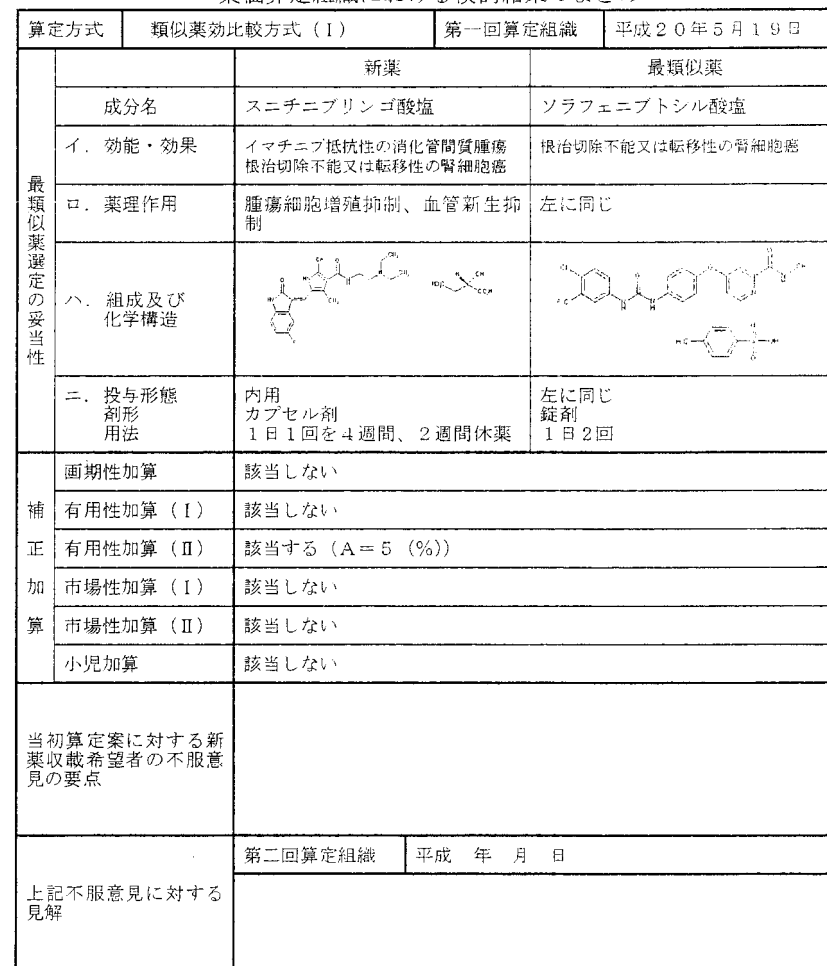 算定方式 類似薬効比較方式(Ⅰ) 第一回算定組織 平成20年5月19日
最類似薬選定の妥当性
新薬 最類似薬
成分名 スニチニブリンゴ酸塩 ソラフェニブトシル酸塩
イ.効能・効果 イマチニブ抵抗性の消化管間質腫瘍 根治切除不能又は転移性の腎細胞癌
根治切除不能又は転移性の腎細胞癌
ロ.薬理作用 腫瘍細胞増殖抑制、血管新生抑 左に同じ
制
ハ.組成及び
化学構造
ニ.投与形態 内用 左に同じ
剤形 カプセル剤 錠剤
用法 1日1回を4週間、2週間休薬 1日2回
補正加算
画期性加算 該当しない
有用性加算(Ⅰ) 該当しない
有用性加算(Ⅱ) 該当する(A=5(%))
市場性加算(Ⅰ) 該当しない
市場性加算(Ⅱ) 該当しない
小児加算 該当しない
当初算定案に対する新
薬収載希望者の不服意
見の要点
第二回算定組織 平成 年 月 日
上記不服意見に対する
見解